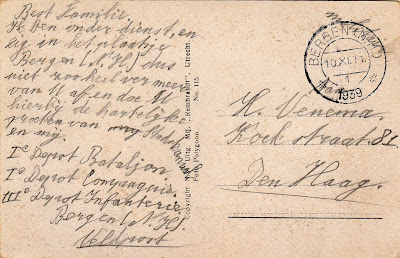 Best Familie.
Ik ben onder dienst, en
lig in het plaatsje
Bergen (N.H.) dus
niet zoo heel ver meer
van U af en doe U
hierbij de hartelijke
groeten van
en mij.
Ie Depot Bataljon
Ie Depot Compagnie,
IIIe Depot Infanterie
Bergen (N.H.)
Veldpost
Copyright Foto Polygoon.
Uitg. Mij. "Rembrandt", Utrecht.
No. 115
BERGEN (N.H.)
10.XI.11
1
1939
H. Venema.
Kockstraat 81
Den Haag.